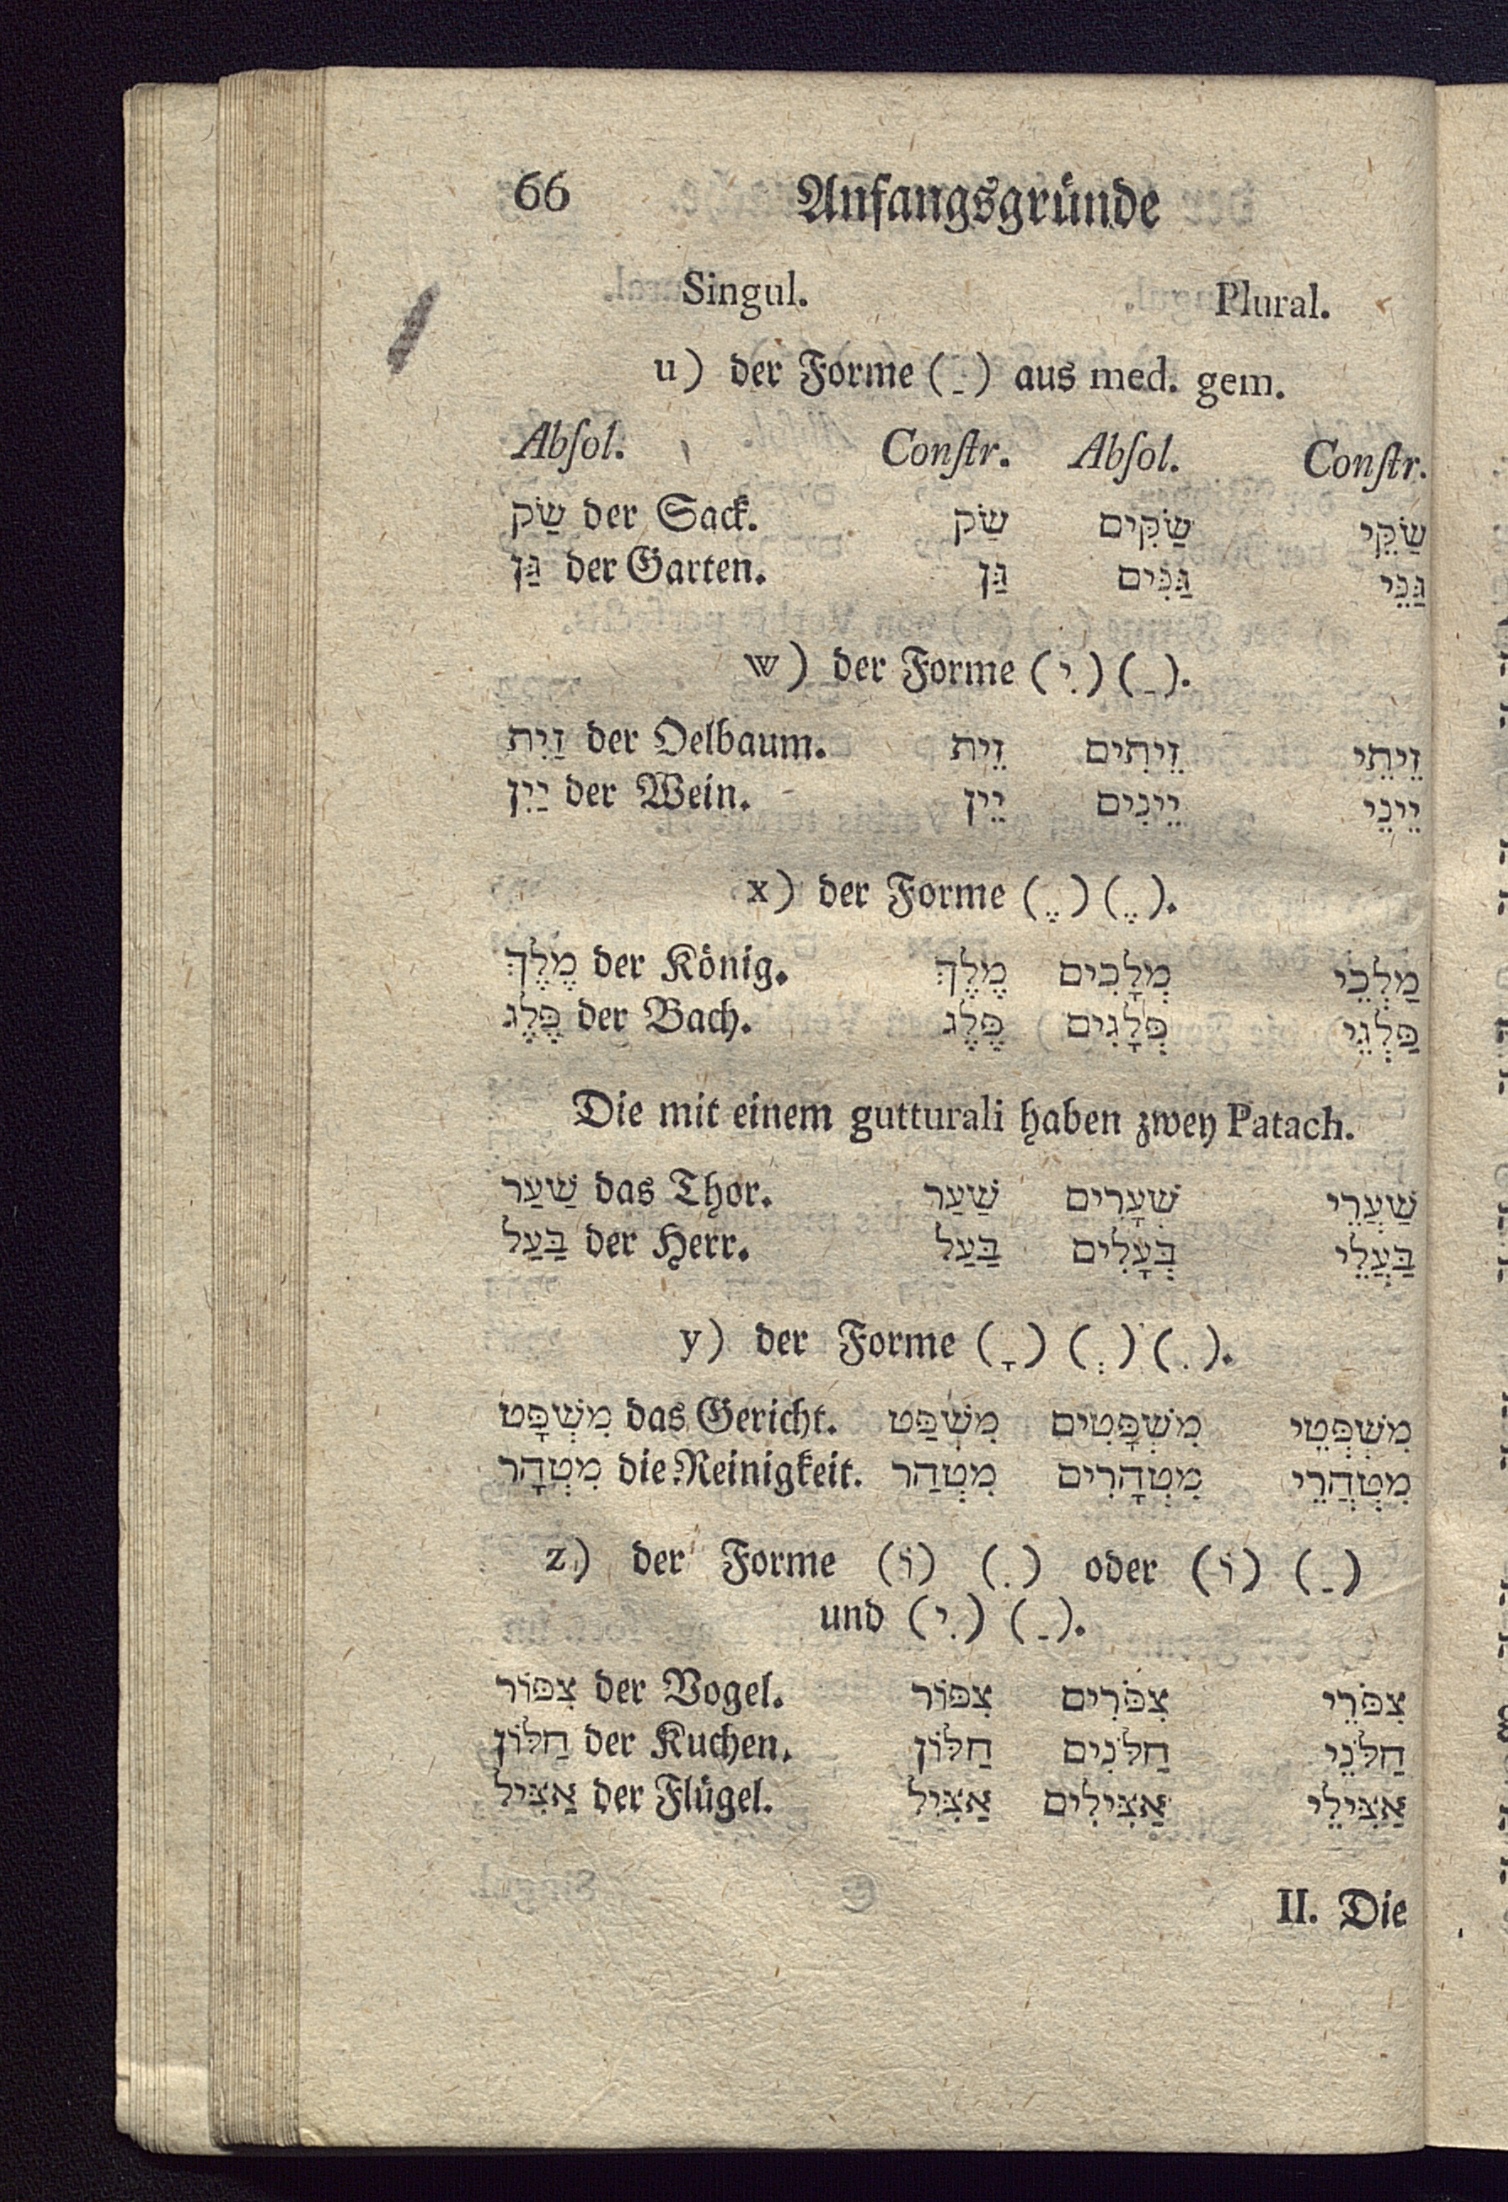 66 Anfangsgründe
Singul. Plural.
u) der Forme ( ַ ) aus med. gem.
Absol. Constr. Absol. Constr.
שַׂק der Sack. שַׂק שַׂקִּים שַׂקֵּי
גַּן der Garten. גַּן גַּנִּים גַּנֵּי
w) der Forme (יִ) ( ַ ).
זַיִת der Oelbaum. זֵית זֵיתִים זֵיתֵי
יַיִן der Wein. יֵין יֵינִים יֵינֵי
x) der Forme ( ֶ ) ( ֶ ).
מֶלֶךְ der König. מֶלֶךְ מְלָכִים מַלְכֵי
פֶּלֶג der Bach. פֶּלֶג פְּלָגִים פַּלְגֵי
Die mit einem gutturali haben zwey Patach.
שַׁעַר das Thor. שַׁעַר שְׁעָרִים שַׁעֲרֵי
בַּעַל der Herr. בַּעַל בְּעָלִים בַּעֲלֵי
y) der Forme ( ָ ) ( ְ ) ( ִ ).
מִשְׁפָּט das Gericht. מִשְׁפַּט מִשְׁפָּטִים מִשְׁפְּטֵי
מִטְהָר die Reinigkeit. מִטְהַר מִטְהָרִים מִטְהֲרֵי
z) der Forme (וֹ) ( ִ ) oder (וֹ) ( ַ )
und (יִ) ( ַ ).
צִפּוֹר der Vogel. צִפּוֹר צִפֹּרִים צִפֹּרֵי
חַלּוֹן der Kuchen. חַלּוֹן חַלֹּנִים חַלֹּנֵי
אַצִּיל der Flügel. אַצִּיל אַצִּילִים אַצִּילֵי
II. Die